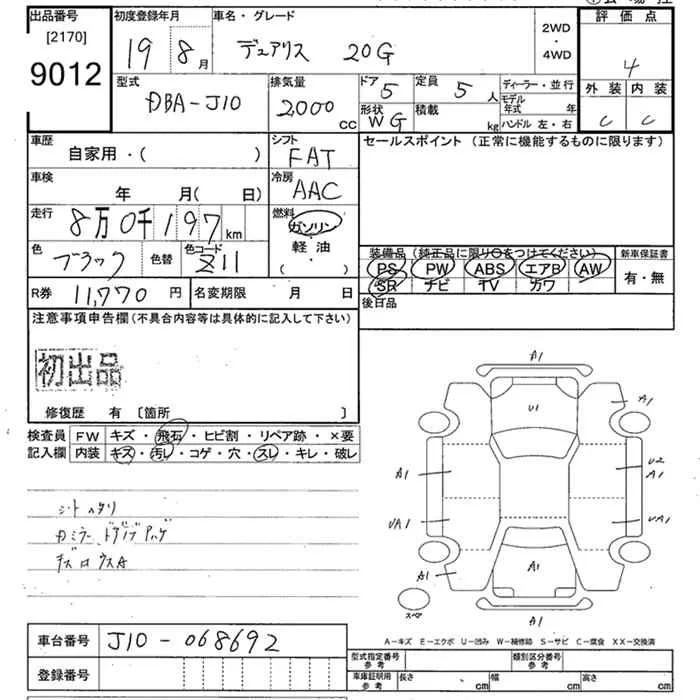 出品番号
[2170]
9012
初度登録年月
19 8月
車名・グレード
デュアリス 20G
2WD
・
4WD
評価点
4
外装 内装
C C
型式
DBA-J10
排気量
2000 CC
ドア 5
定員 5人
形状 WG
積載 kg
ディーラー・並行
モデル年式 年
ハンドル 左・右
車歴
自家用・( )
シフト
FAT
セールスポイント (正常に機能するものに限ります)
車検
年 月( 日)
冷房
AAC
走行
8万0千197km
燃料
ガソリン
軽油
( ・ )
色
ブラック
色替
色コード
Z11
装備品 (純正品に限り○をつけてください)
PS PW ABS エアB AW
SR ナビ TV カワ
新車保証書
有・無
R券 11,770円
名変期限 月 日
後日品
注意事項申告欄 (不具合内容等は具体的に記入して下さい)
初出品
修復歴 有 〔箇所 〕
検査員
記入欄
FW キズ・飛石・ヒビ割・リペア跡・×要
内装 キズ・汚レ・コゲ・穴・スレ・キレ・破レ
シートヘタリ
A1
U1
A1
A1
U2
A1
UA1
UA1
A1
A1
A1
スペア
A-キズ E-エクボ U-凹み W-補修跡 S-サビ C-腐食 XX-交換済
車台番号 J10-068692
登録番号
型式指定番号
参考
類別区分番号
参考
車庫証明用
参考
長さ cm
幅 cm
高さ cm